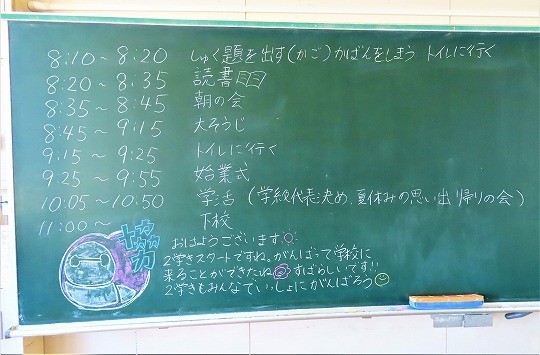 8:10～8:20 しゅく題を出す(かご)かばんをしまう トイレに行く
8:20～8:35 読書
8:35～8:45 朝の会
8:45～9:15 大そうじ
9:15～9:25 トイレに行く
9:25～9:55 始業式
10:05～10:50 学活 (学級代表決め、夏休みの思い出 帰りの会)
11:00～ 下校
おはようございます
2学きスタートですね。がんばって学校に
来ることができたね すばらしいです!!
2学きもみんなでいっしょにがんばろう